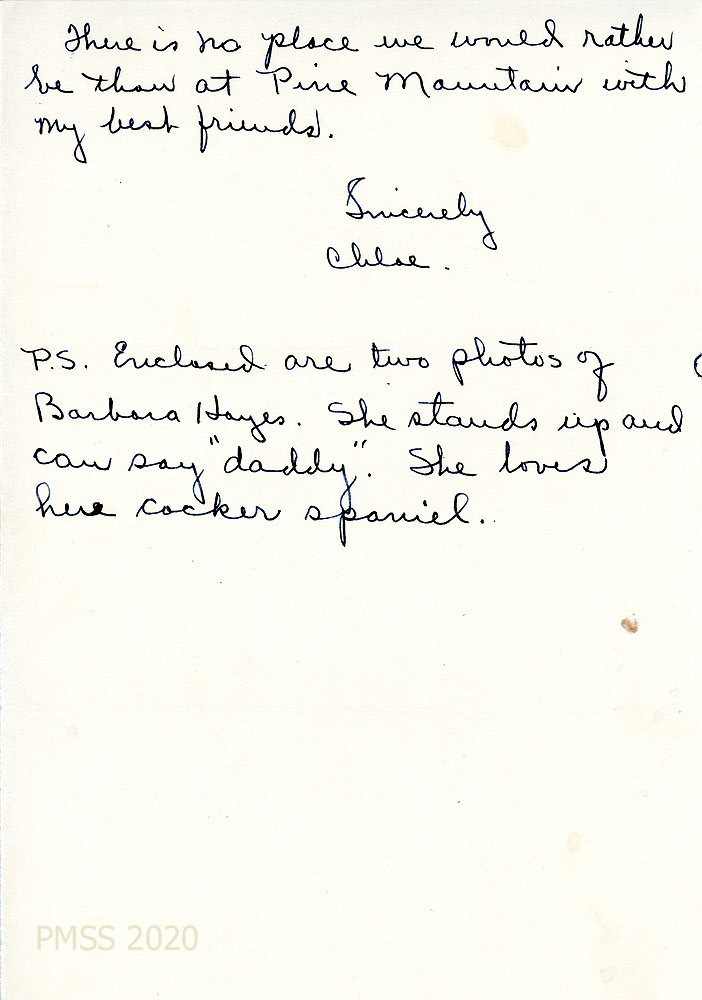 There is no place we would rather
be than at Pine Mountain with
my best friends.
Sincerely
Chloe.
P.S. Enclosed are two photos of
Barbara Hayes. She stands up and
can say "daddy". She loves
here cocker spaniel.
PMSS 2020